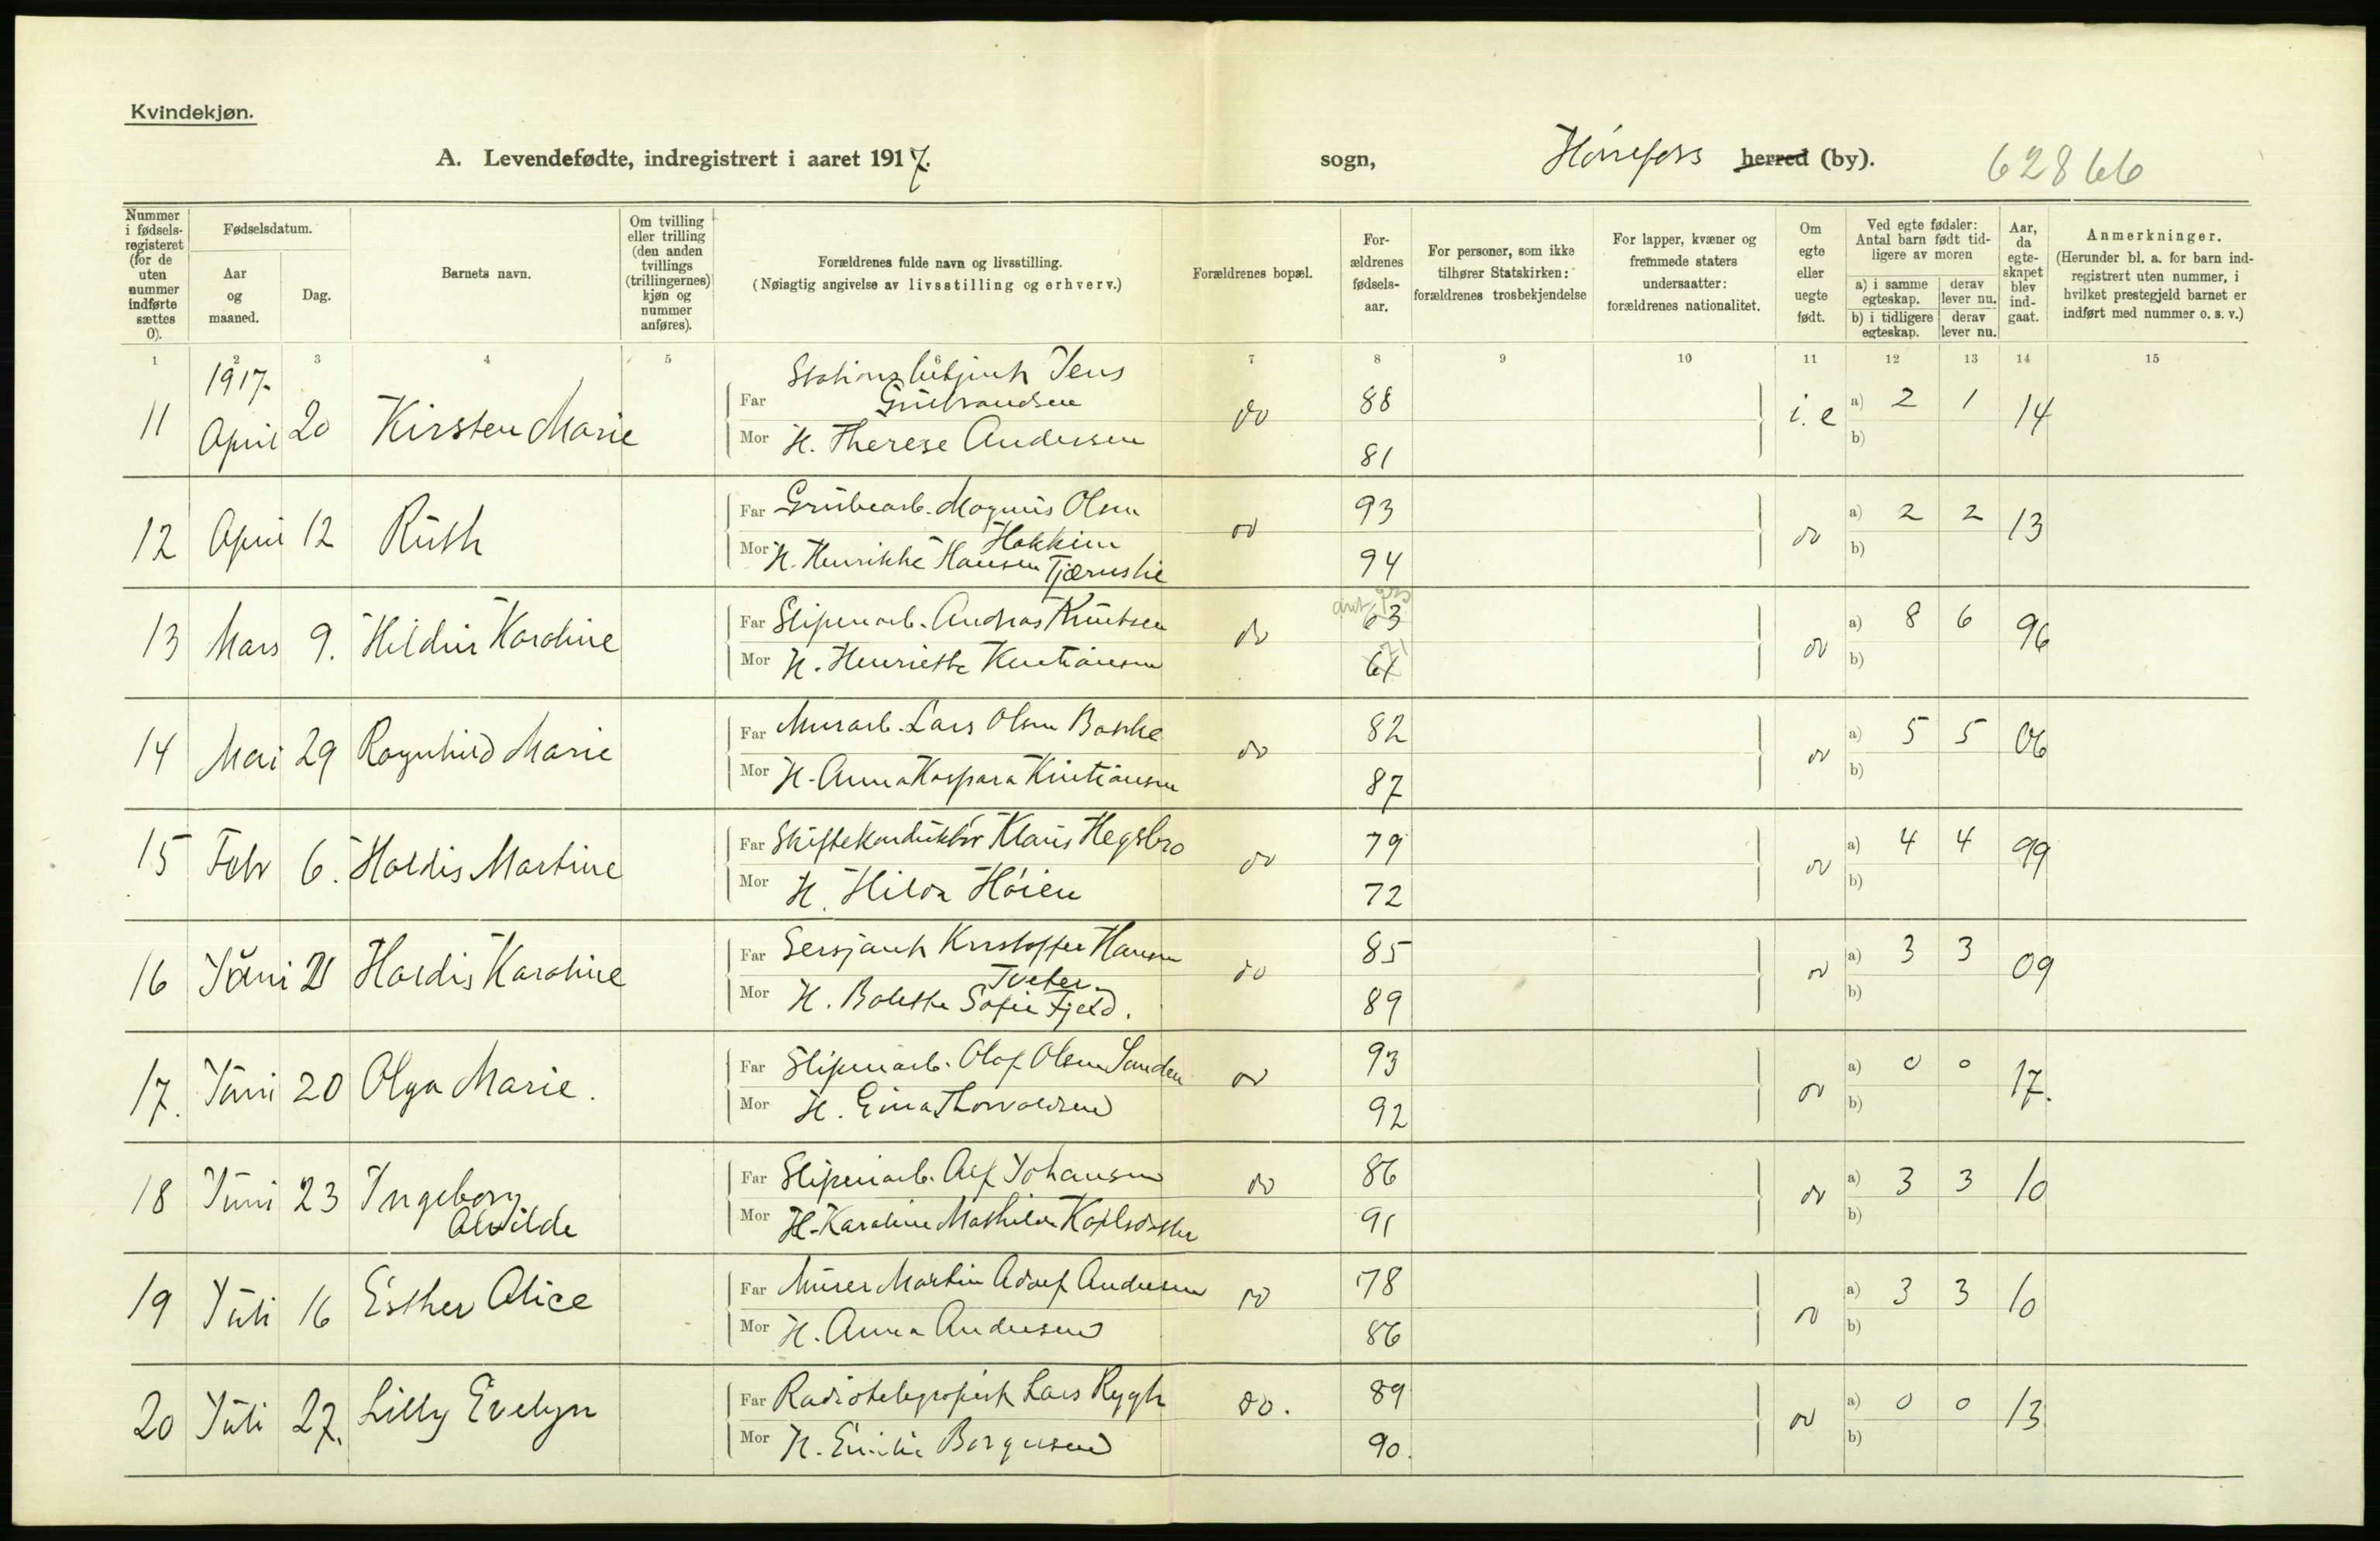 Kvindekjøn.
A. Levendefødte, indregistrert i aaret 1917. sogn, Hønefoss herred (by). 62866
Nummer i fødsels-registeret (for de uten nummer indførte sættes 0).
Fødselsdatum.
Aar og maaned.
Dag.
Barnets navn.
Om tvilling eller trilling (den anden tvillings (trillingernes) kjøn og nummer anføres).
Forældrenes fulde navn og livsstilling.
(Nøiagtig angivelse av livsstilling og erhverv.)
Forældrenes bopæl.
For-ældrenes fødsels-aar.
For personer, som ikke tilhører Statskirken: forældrenes trosbekjendelse
For lapper, kvæner og fremmede staters undersaatter: forældrenes nationalitet.
Om egte eller uegte født.
Ved egte fødsler: Antal barn født tid-ligere av moren
a) i samme egteskap.
derav lever nu.
b) i tidligere egteskap.
derav lever nu.
Aar, da egte-skapet blev ind-gaat.
Anmerkninger.
(Herunder bl. a. for barn ind-registrert uten nummer, i hvilket prestegjeld barnet er indført med nummer o. s. v.)
1 2 3 4 5 6 7 8 9 10 11 12 13 14 15
1917.
11 April 20 Kirsten Marie
Far Jens Gulbrandsen do 88 i. e a) 2 1 14
Mor H. Therese Andersen 81 b)
12 April 12 Ruth
Far Grubearb. Magnus Olsen Hakkim do 93 do a) 2 2 13
Mor H. Henrikke Hansen Tjærnslie 94 b)
13 Mars 9. Hildur Karoline
Far Sliperiarb. Andreas Knutsen do 63 do a) 8 6 96
Mor H. Henriette Kristiansen 71 b)
14 Mai 29 Ragnhild Marie
Far Murarb. Lars Olsen do 82 do a) 5 5 06
Mor H. Anna Kaspara Kristiansen 87 b)
15 Febr 6. Haldis Martine
Far Skiftekonduktør Klaus Hegsbro do 79 do a) 4 4 99
Mor H. Hilda Høien 72 b)
16 Juni 21 Hardis Karoline
Far Sersjant Kristoffer Hansen Tveter do 85 do a) 3 3 09
Mor H. Bolette Sofie Fjeld. 89 b)
17. Juni 20 Olga Marie.
Far Sliperiarb. Olaf Olsen Sanden do 93 do a) 0 0 17.
Mor H. Gina Thorvaldsen 92 b)
18 Juni 23 Ingeborg Alvilde
Far Sliperiarb. Alf Johansen do 86 do a) 3 3 10
Mor H. Karoline Mathilde 91 b)
19 Juli 16 Esther Alice
Far Murer Martin Adolf Andersen do 78 do a) 3 3 10
Mor H. Anna Andersen 86 b)
20 Juli 27. Lilly Evelyn
Far Radiotelegrafist Lars Rygh do. 89 do a) 0 0 13
Mor H. Emilie Borgersen 90. b)